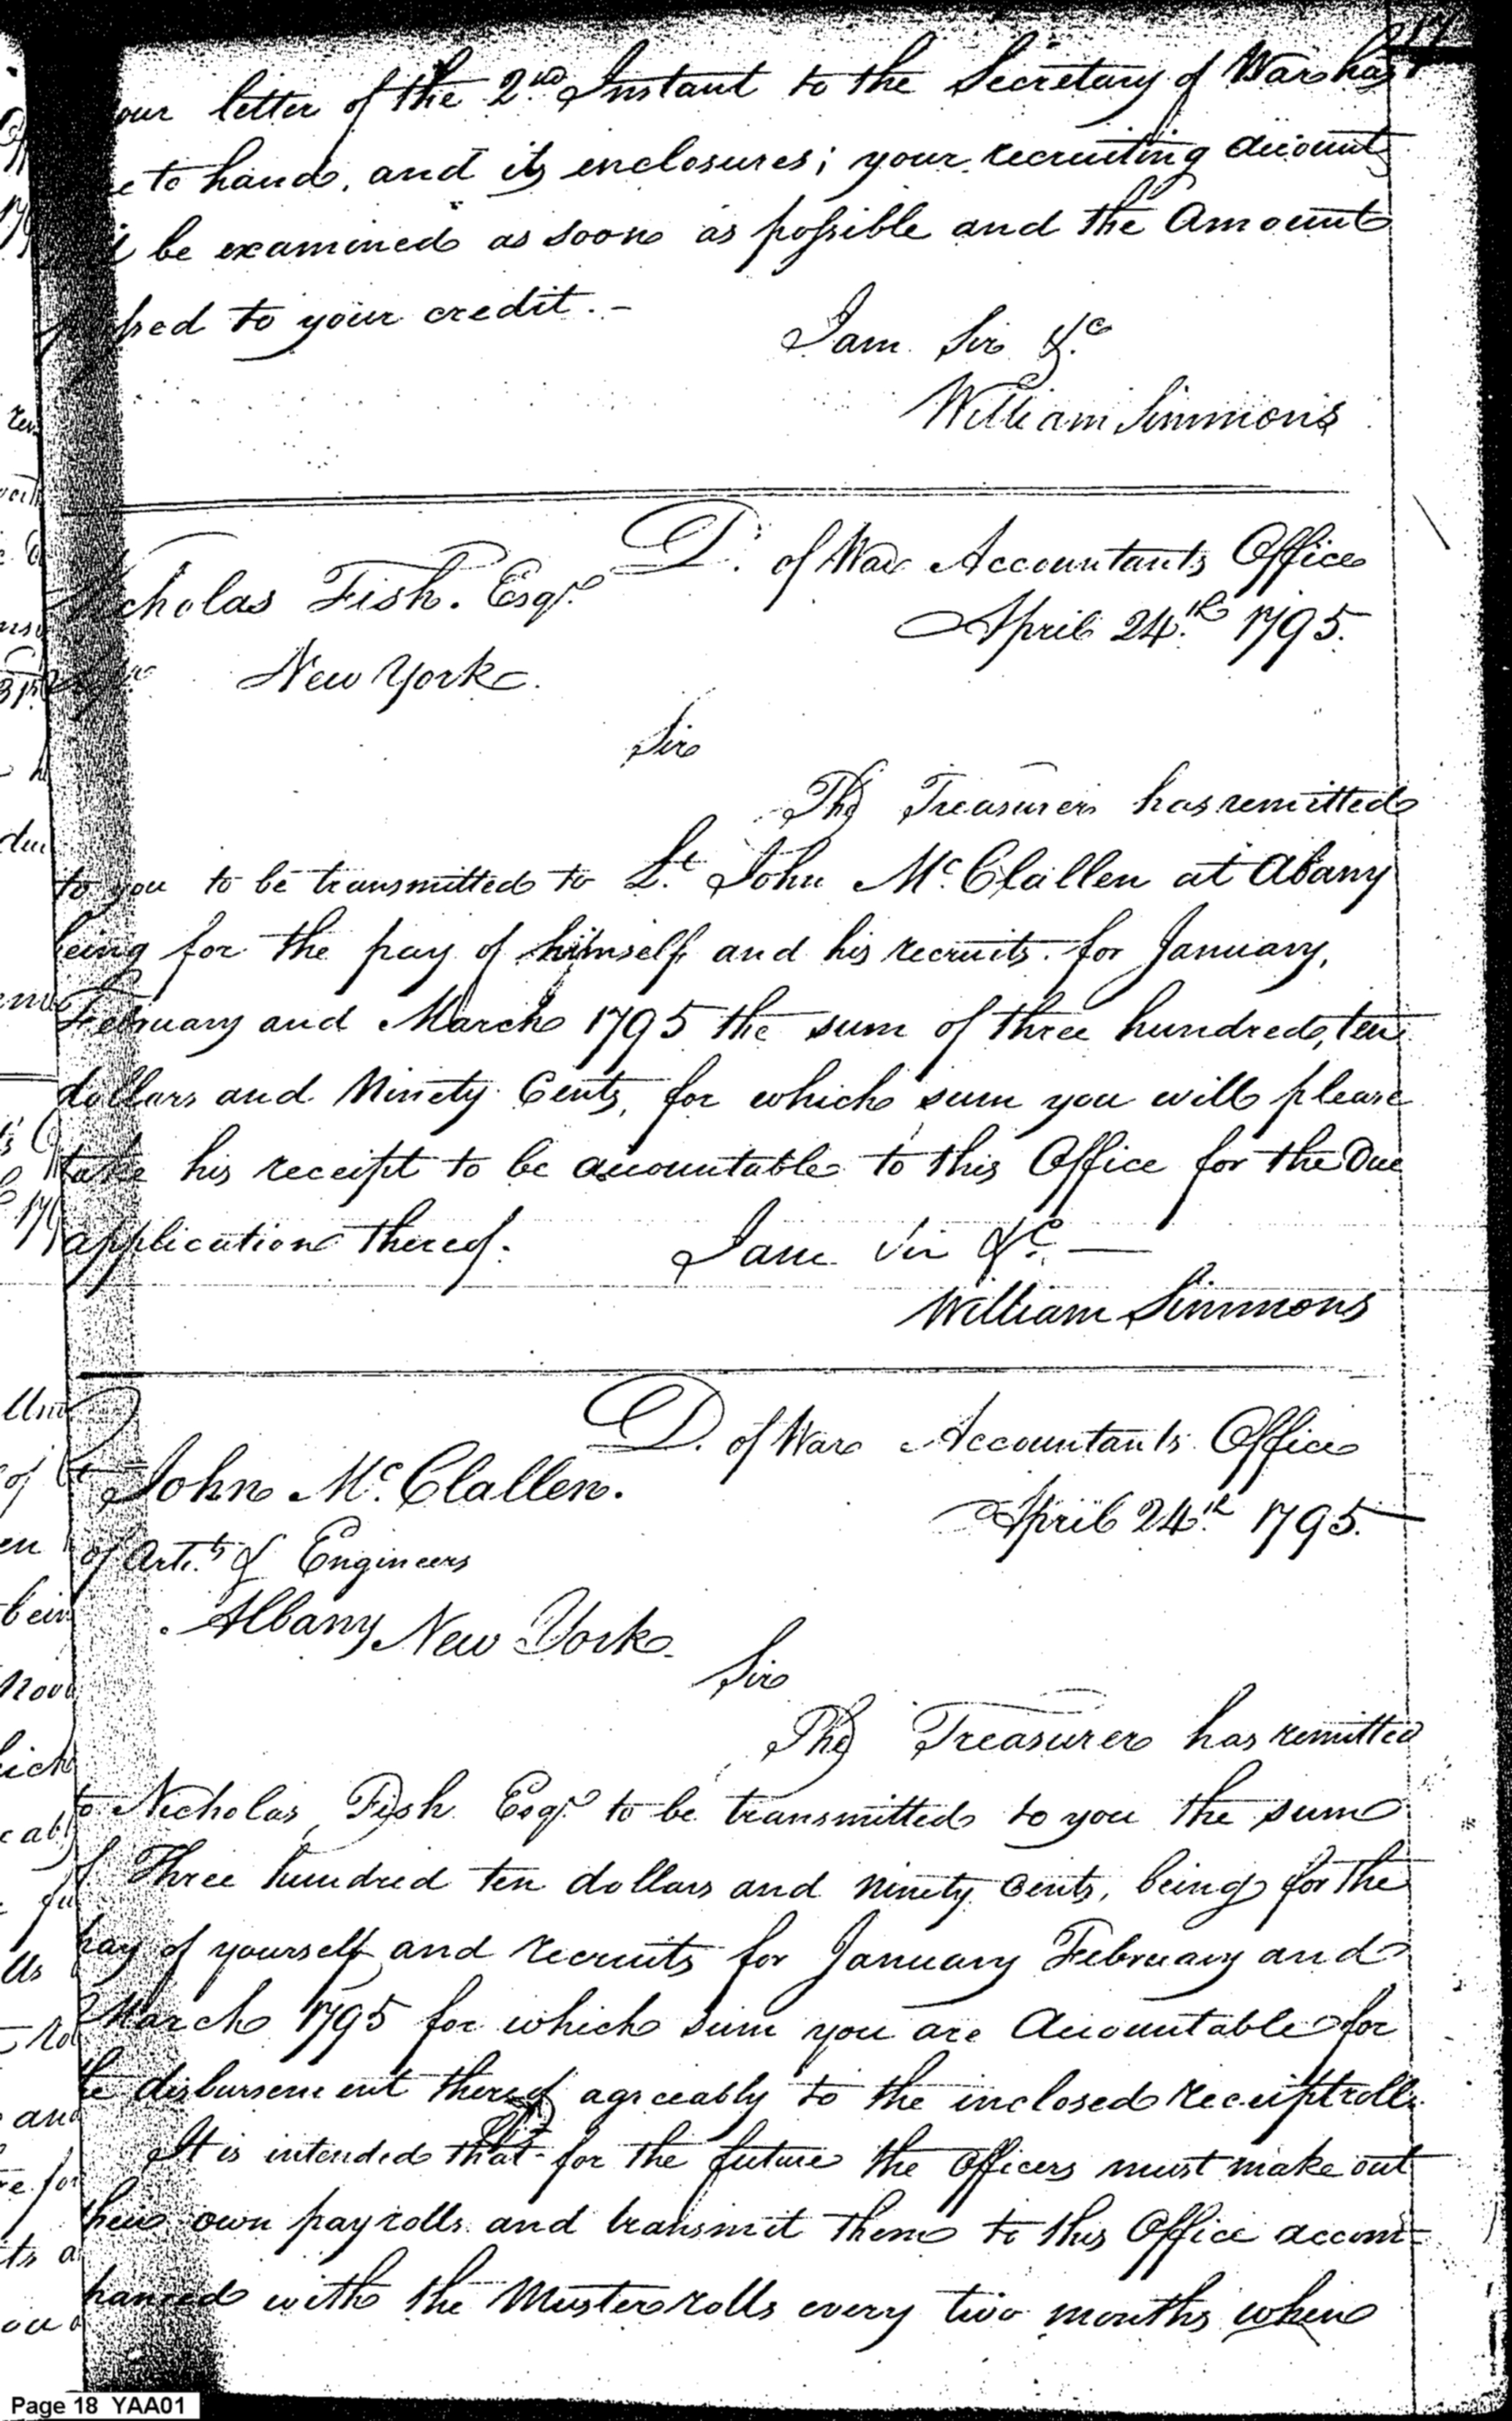 17
our letter of the 2nd Instant to the Secretary of War has
e to hand, and its enclosures; your recruiting account
l be examined as soon as possible and the Amount
passed to your credit. -
I am Sir &c
William Simmons
D. of War Accountants Office
Nicholas Fish. Esqr.
April 24th 1795.
New York.
Sir
The Treasurer has remitted
to you to be transmitted to Lt. John McClallen at Abany
being for the pay of himself and his recruits for January,
February and March 1795 the sum of three hundred, ten
dollars and Ninety Cents, for which sum you will please
take his receipt to be accountable to this Office for the Due
application thereof. I am Sir &c. —
William Simmons
D. of War Accountants Office
Lt John McClallen.
April 24th 1795.
of Arts. & Engineers
Albany New York.
Sir
The Treasurer has remitted
to Nicholas Fish Esqr to be transmitted to you the sum
of Three hundred ten dollars and ninety Cents, being for the
pay of yourself and recruits for January February and
March 1795 for which sum you are Accountable for
the disbursement thereof agreeably to the inclosed receiptrolls.
It is intended that for the future the Officers must make out
their own payrolls and transmit them to this Office accom=
panied with the Muster rolls every two months when
Page 18 YAA01